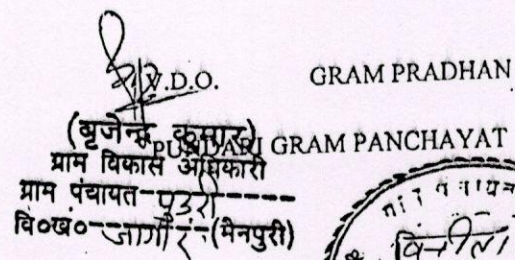 V.D.O. GRAM PRADHAN
(बृजेन्द्र कुमार)
PUNDARI GRAM PANCHAYAT
ग्राम विकास अधिकारी
ग्राम पंचायत-पुंडरी
वि०खं०-जागीर-(मैनपुरी)